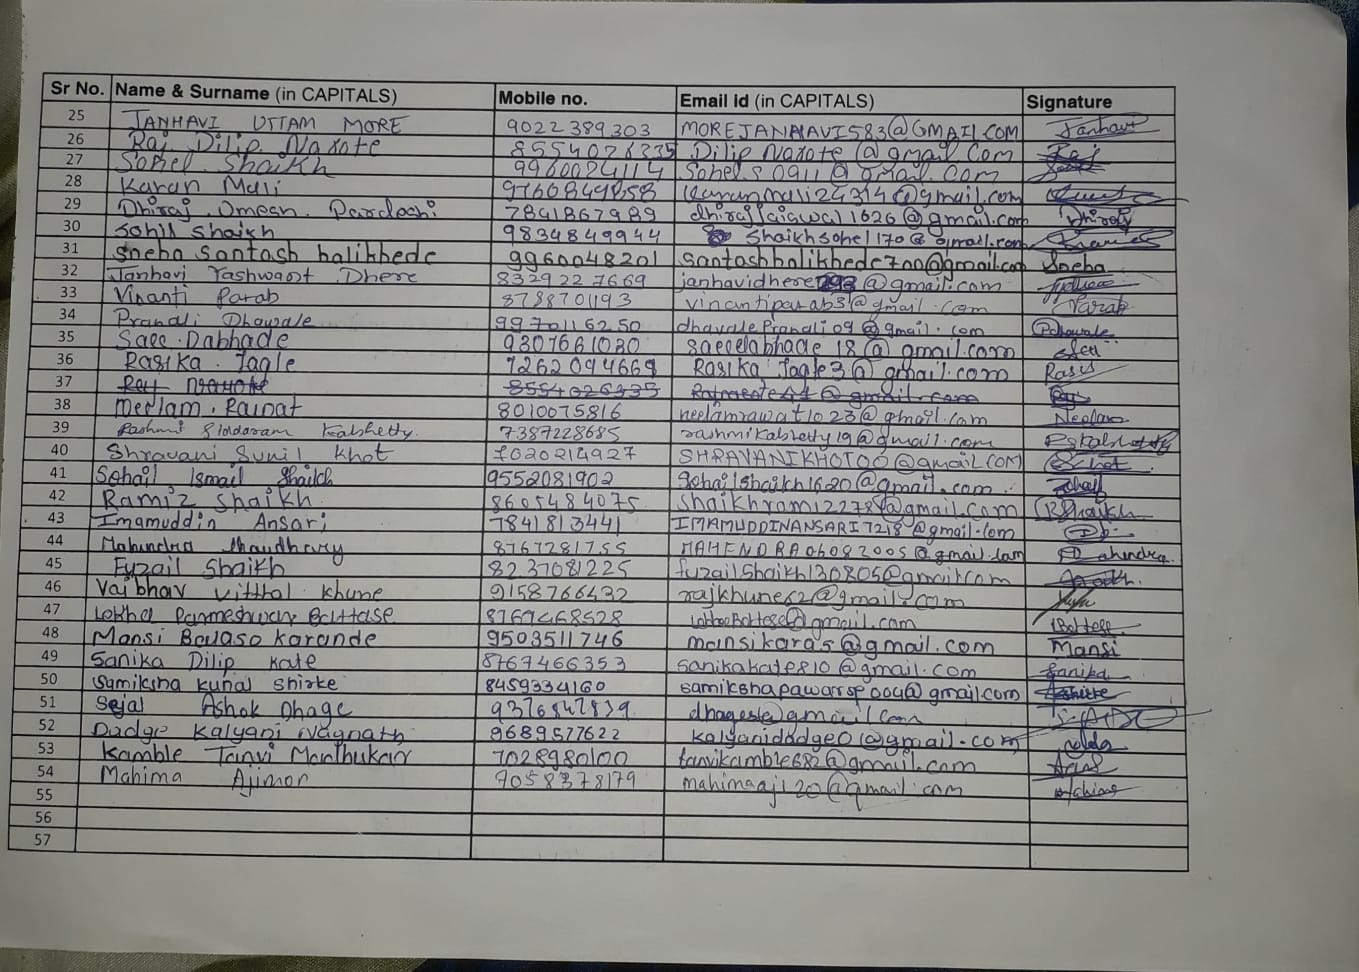 Sr No. Name & Surname (in CAPITALS) Mobile no. Email Id (in CAPITALS) Signature
25 JANHAVI UTTAM MORE 9022389303 MOREJANHAVI583@GMAIL.COM Janhavi
26 Raj. Dilip Narote 8554026335 Dilip Narote@gmail.com Raj
27 Sohel. Shaikh 9960024114 Sohel.s0911@gmail.com
28 Karan Mali karanmali24314@gmail.com
29 Dhiraj. Umesh. Pardeshi 7841867989 dhirajjaiswal1626@gmail.com Dhiraj
30 Sohil Shaikh 9834849944 Shaikhsohel170@gmail.com
31 Sneha Santosh halikhede 9960048201 Santoshhalikhede700@gmail.com Sneha
32 Janhavi Yashwant Dhere 8329227669 janhavidhere293@gmail.com
33 Vinanti Parab 8788701193 vinantiparab3@gmail.com Parab
34 Pranali Dhavale 9970116250 dhavalepranali09@gmail.com PDhavale
35 Saee. Dabhade 9307661030 saeedabhade18@gmail.com Saee
36 Rasika. Jagle 7262094669 Rasika Jagle3@gmail.com Rasi
37 Raj Narote 8554026335 @gmail.com
38 Neelam. Rawat 8010075816 neelamrawat1023@gmail.com Neelam
39 Rashmi Siddaram Kabshetty. 7387228685 rashmikabshetty19@gmail.com
40 Shravani Sunil Khot 7020214927 SHRAVANIKHOT00@gmail.COM
41 Sohail Ismail Shaikh 9552081902 Sohailshaikh1620@gmail.com Sohail
42 Ramiz Shaikh 8605484075 Shaikhrami2278@gmail.com RShaikh
43 Imamuddin Ansari 7841813441 IMAMUDDINANSARI7218@gmail.com
44 Mahindra Chaudhary 8767281755 MAHENDRA06082005@gmail.com Mahendra
45 Fuzail Shaikh 8237081225 fuzailshaikh130805@gmail.com
46 Vaibhav Vitthal Khune 9158766432 rajkhune62@gmail.com
47 Parmeshwar 8767468528 @gmail.com
48 Mansi Bavaso Karande 9503511746 mansikara5@gmail.com Mansi
49 Sanika Dilip Kate 8767466353 sanikakate810@gmail.com Sanika
50 Samiksha Kunal Shirke 8459334160 samikshapawarsp004@gmail.com
51 Sejal Ashok Dhage 9376847839 dhagesle@gmail.com
52 Dadge Kalyani Vagnath 9689577622 kalyanidadge0@gmail.com
53 Kamble Tanvi Madhukar 7028980100 tanvikamble682@gmail.com
54 Mahima Ajimor 7058378179 mahimaaji20@gmail.com Mahima
55
56
57